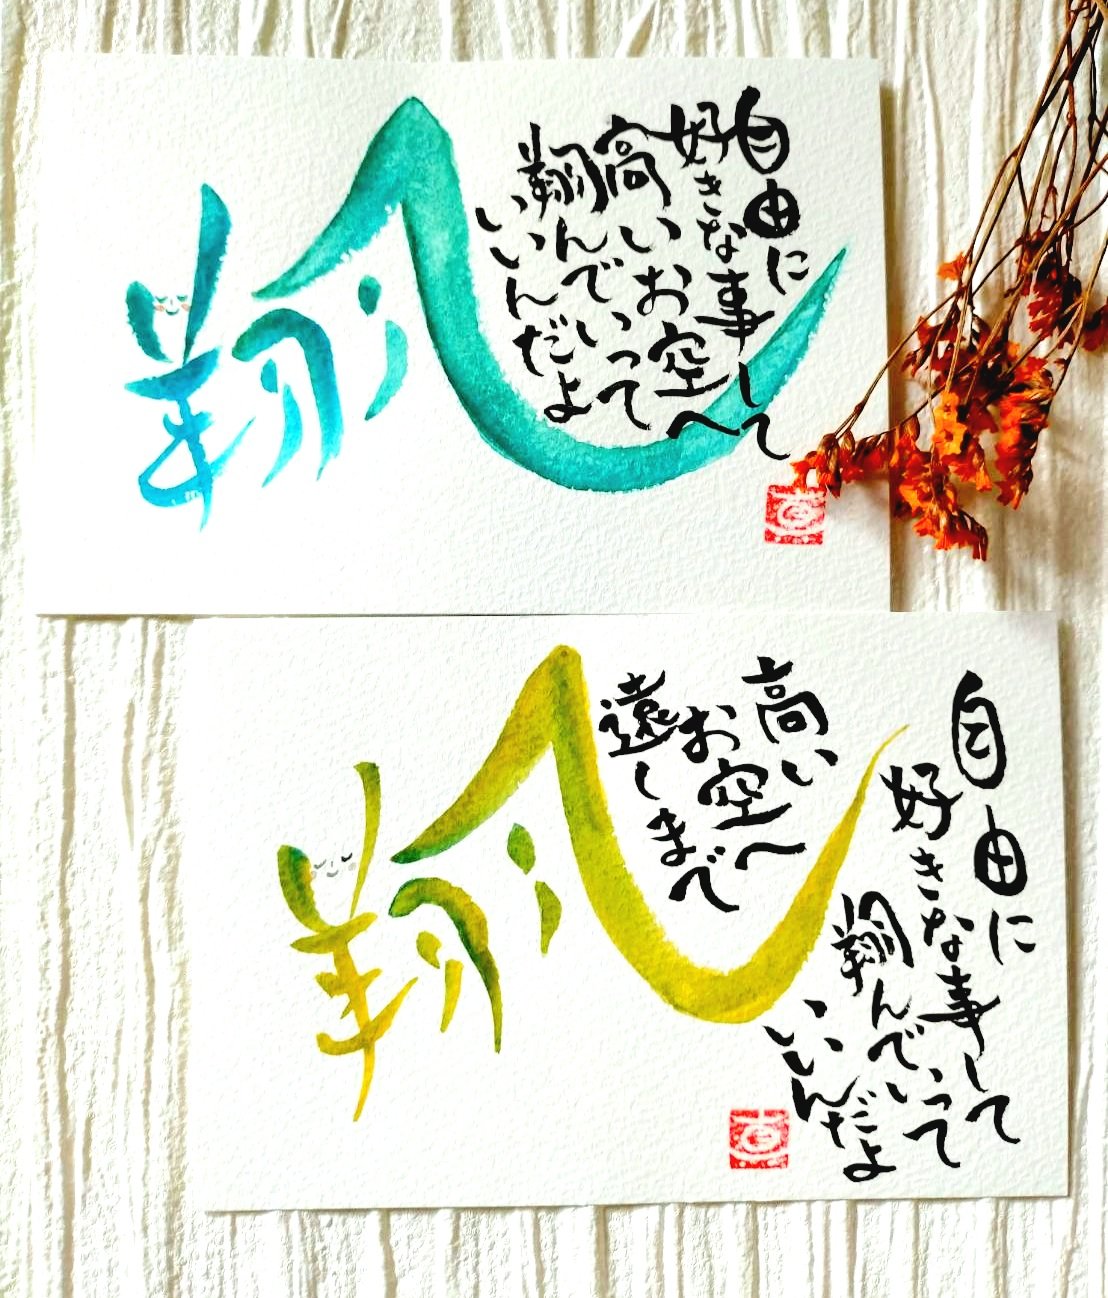 翔
自由に
好きな事して
高いお空へ
翔んでいって
いいんだよ
翔
自由に
好きな事して
高いお空へ
遠くまで
翔んでいって
いいんだよ